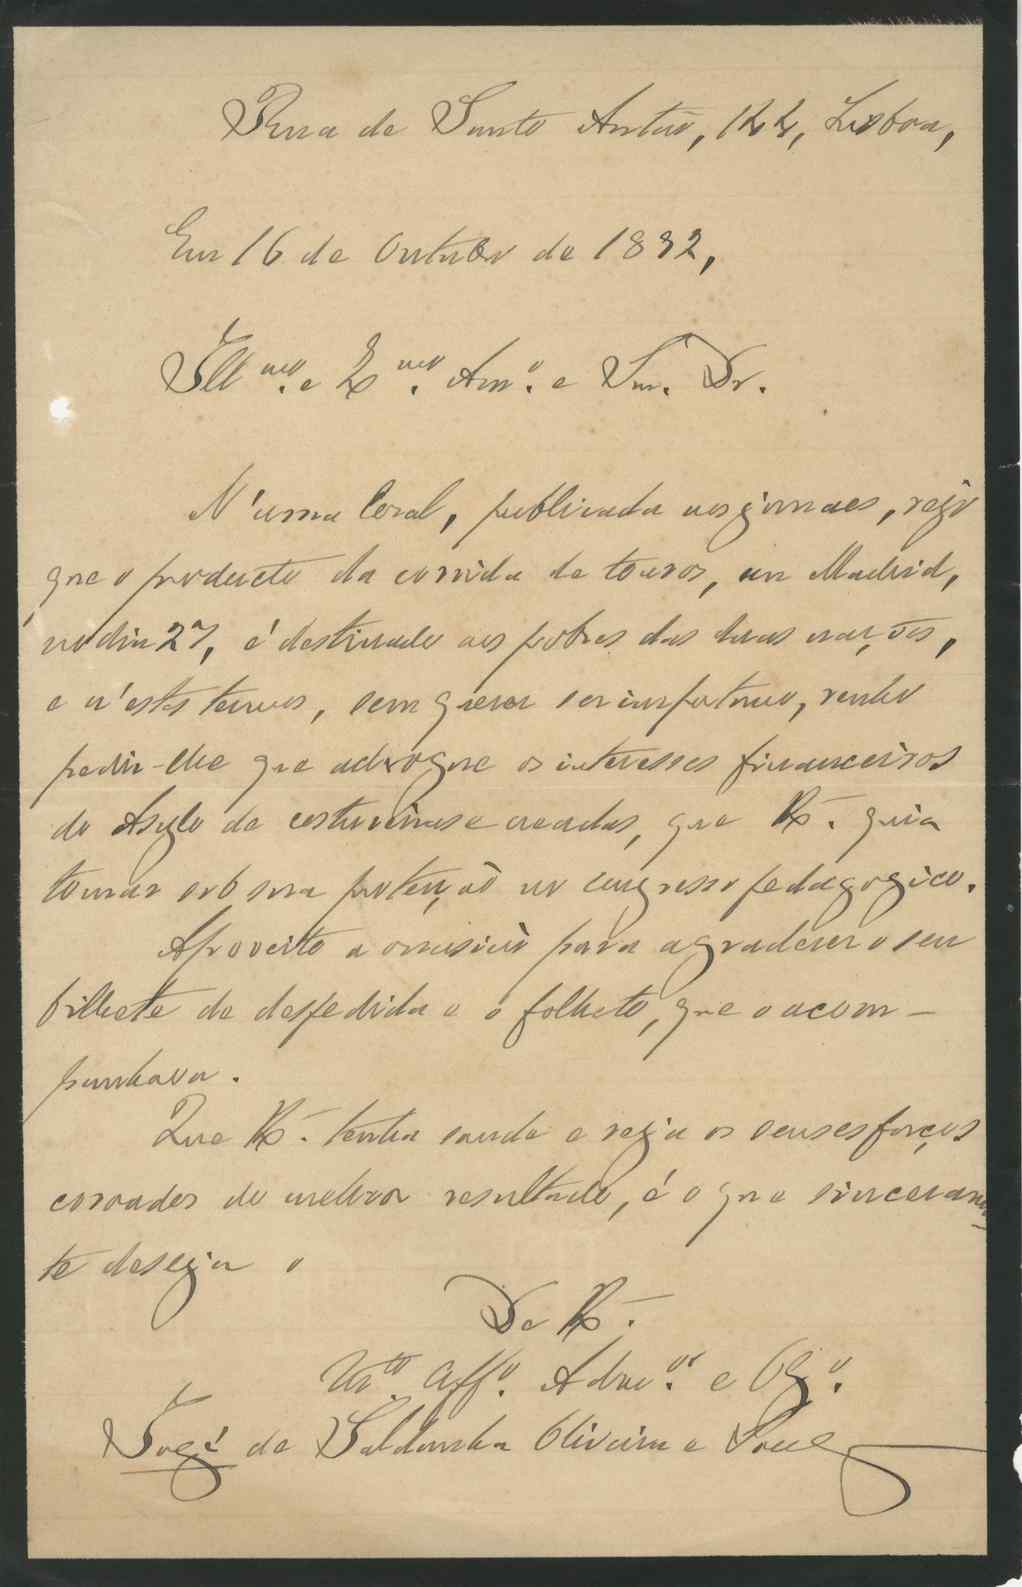 Rua de Santo Antão, 144, Lisboa,
Em 16 de Outubro de 1892,
Illmo. e Exmo. Amo. e Snr. Dr.
N'uma local, publicada nos jornaes, vejo
que o producto da corrida de touros, em Madrid,
no dia 27, é destinado aos pobres das duas nações,
e n'estes termos, sem querer ser importuno, venho
pedir-lhe que advogue os interesses financeiros
do Asylo de costureiras e creadas, que V. Ex. quiz
tomar sob sua protecção no congresso pedagogico.
Aproveito a occasião para agradecer o seu
bilhete de despedida e o folheto, que o acom-
panhava.
Que V. Ex. tenha saude e veja os seus esforços
coroados do melhor resultado, é o que sinceramen-
te deseja o
De V. Ex.
Mto. Affo. Admor. e Obgo.
José de Saldanha Oliveira e Souza